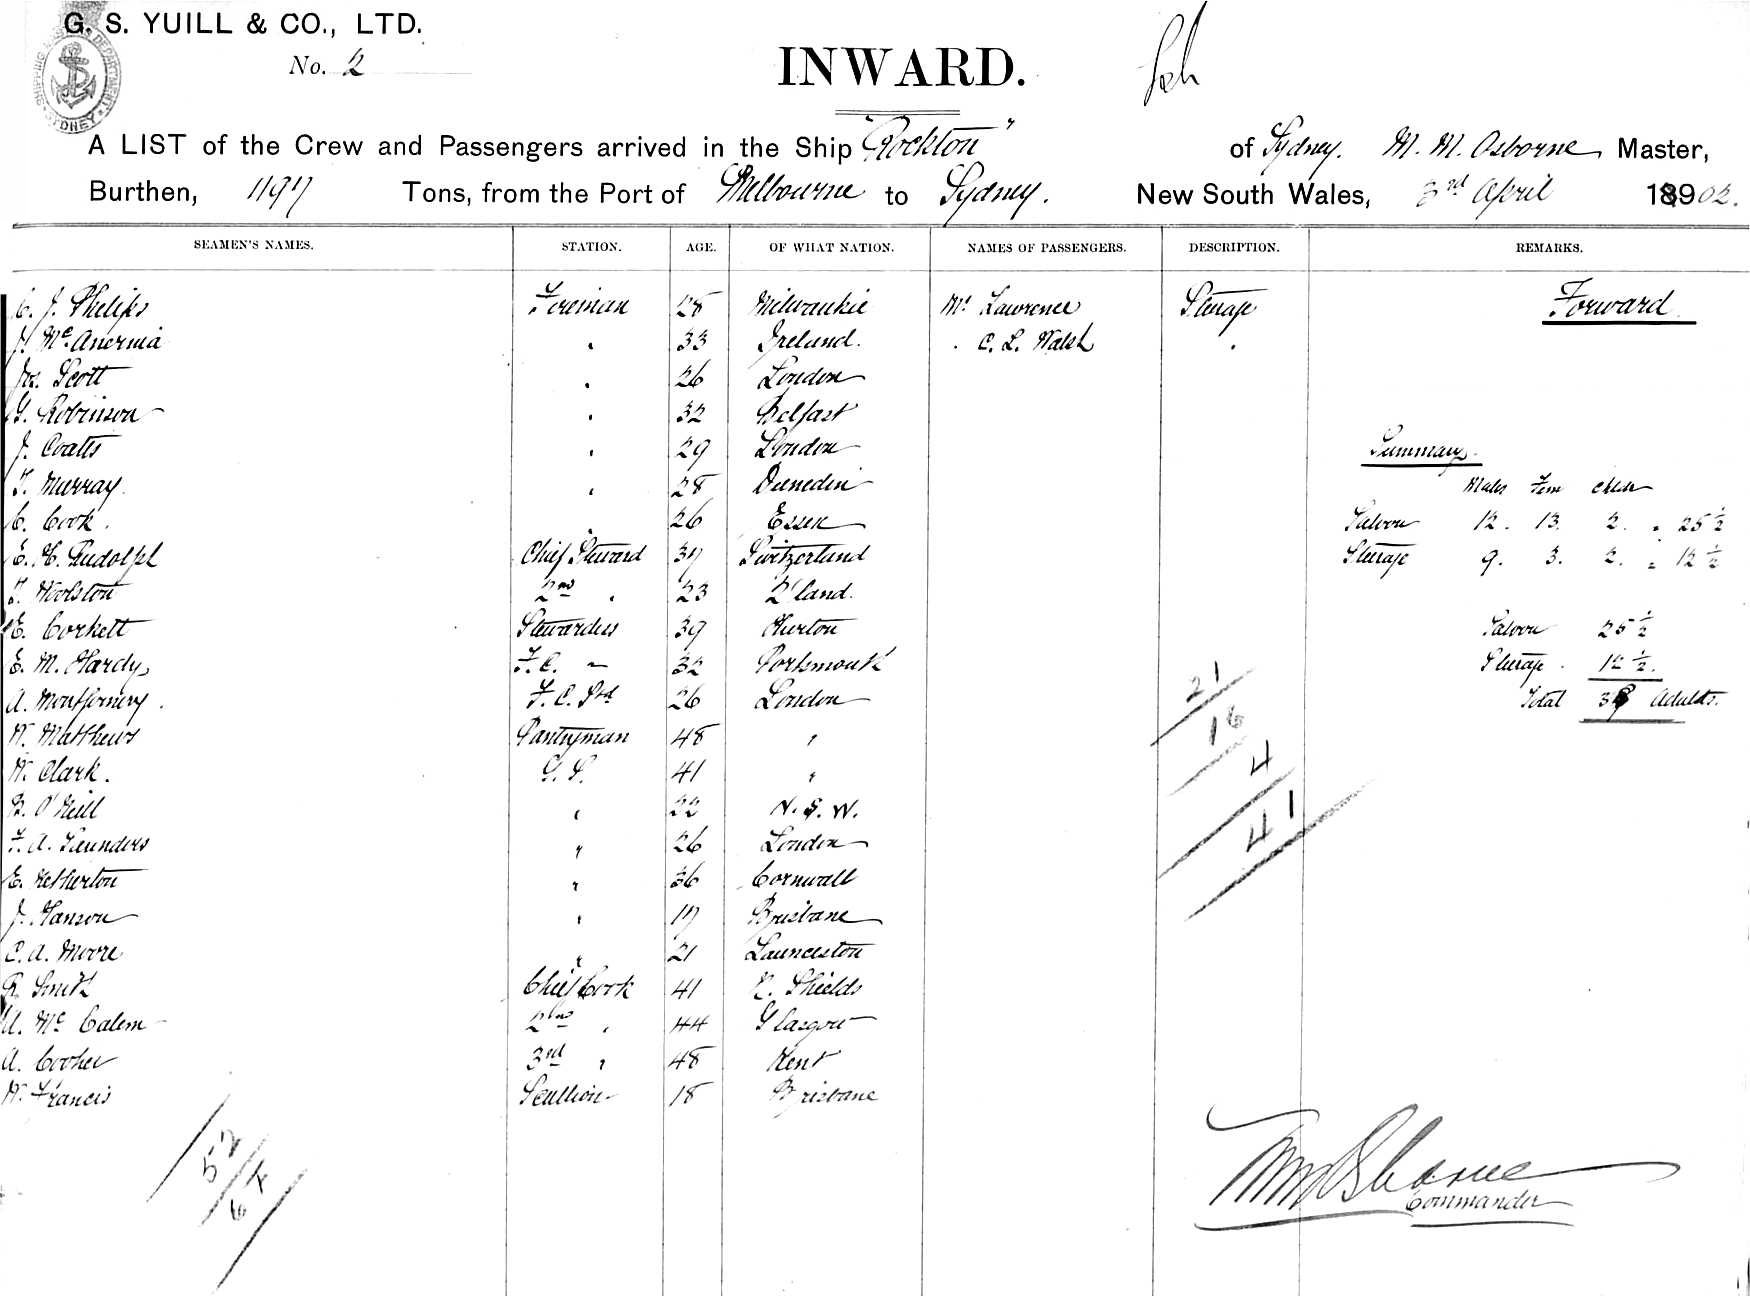 G. S. YUILL & CO., LTD.
SHIPPING MASTER'S DEPARTMENT SYDNEY
No. 2
INWARD.
A LIST of the Crew and Passengers arrived in the Ship "Rockton" of Sydney. M. M. Osborne Master,
Burthen, 1197 Tons, from the Port of Melbourne to Sydney. New South Wales, 3rd April 1902.
SEAMEN'S NAMES. STATION. AGE. OF WHAT NATION. NAMES OF PASSENGERS. DESCRIPTION. REMARKS.
C. J. Phelips Foreman 28 Milwaukie Mr Lawrence Sterage Forward
J. McAnernia " 33 Ireland. " C. L. Walsh "
Jas. Scott " 26 London
G. Robinson " 32 Belfast
J. Coatts " 29 London Summary.
T. Murray. " 28 Dunedin Males Fem Childr
C. Cook. " 26 Essex Saloon 12. 13. 2. " 25 ½
E. H. Rudolph Chief Steward 37 Switzerland Sterage 9. 3. 2. " 12 ½
T. Woolston 2nd " 23 Q'land.
E. Corkett Stewardess 39 Saloon 25 ½
E. M. Hardy F.C. " 32 Portsmouth Sterage. 12 ½.
A. Montgomery. F.C. Std 26 London Total 38 Adults.
W. Matthews Pantryman 48 "
W. Clark. G. S. 41 "
B. O'Neill " 22 N. S. W.
F. A. Saunders " 26 London
E. Netherton " 36 Cornwall
J. Hanson " 17 Brisbane
C. A. Moore " 21 Launceston
R. Smith Chief Cook 41 N. Shields
A. Mc Calem 2nd " 44 Glasgow
A. Cooher 3rd " 48 Kent
W. Francis Scullion 18 Brisbane
21
16
4
41
52
64
M M Osborne
Commander